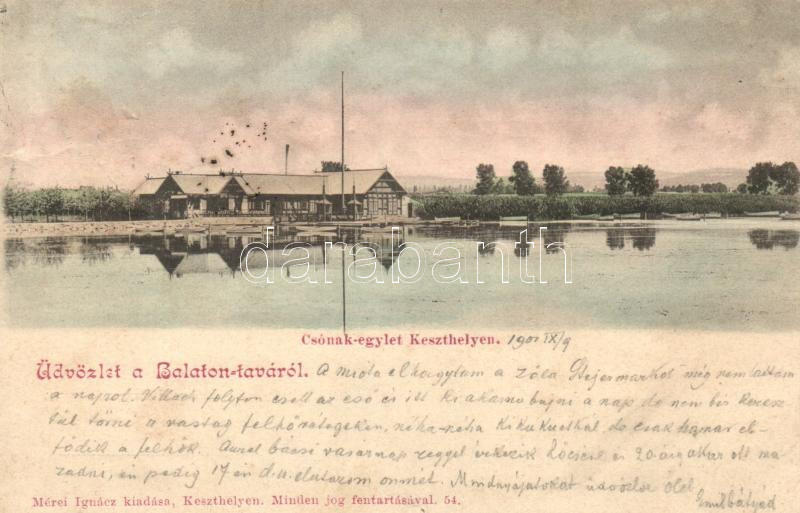 darabanth
Csónak-egylet Keszthelyen. 1901 IX/9
Üdvözlet a Balaton-taváról. A mióta elhagytam a Zóla Stejermarkot még nem láttam
a napot. Villach folyton esett az eső és itt ki akarna bujni a nap de nem bir keresz
tül törni a vastag felhőrétegeken, néha-néha kikukucskál de csak hamar el
födik a felhők. vasárnap reggel érkezik és 20áig akar ott ma
radni, én pedig 17én d.u. utazom onnét. Mindnyájatokat üdvözöl ölel
Mérei Ignácz kiadása, Keszthelyen. Minden jog fentartásával. 54.